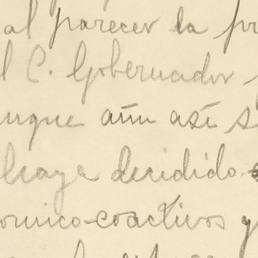 al parecer la pr
l C. Gobernador
unque aún así s
haya decidido
omico-coactivos y